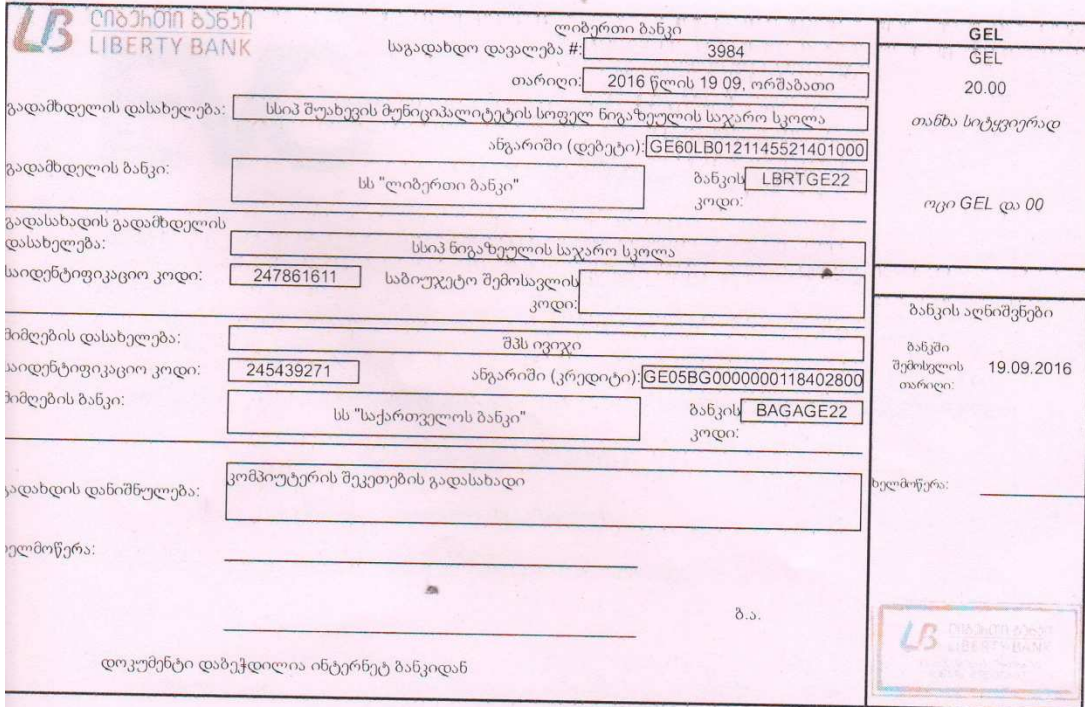 ლიბერთი ბანკი
LIBERTY BANK
ლიბერთი ბანკი
საგადახდო დავალება #: 3984
თარიღი: 2016 წლის 19 09, ორშაბათი
გადამხდელის დასახელება: სსიპ შუახევის მუნიციპალიტეტის სოფელ ნიგაზეულის საჯარო სკოლა
ანგარიში (დებეტი): GE60LB0121145521401000
გადამხდელის ბანკი: სს "ლიბერთი ბანკი" ბანკის კოდი: LBRTGE22
გადასახადის გადამხდელის
დასახელება: სსიპ ნიგაზეულის საჯარო სკოლა
საიდენტიფიკაციო კოდი: 247861611 საბიუჯეტო შემოსავლის
კოდი:
მიმღების დასახელება: შპს ივიჯი
საიდენტიფიკაციო კოდი: 245439271 ანგარიში (კრედიტი): GE05BG0000000118402800
მიმღების ბანკი: სს "საქართველოს ბანკი" ბანკის კოდი: BAGAGE22
გადახდის დანიშნულება: კომპიუტერის შეკეთების გადასახადი
ხელმოწერა:
ბ.ა.
დოკუმენტი დაბეჭდილია ინტერნეტ ბანკიდან
GEL
GEL
20.00
თანხა სიტყვიერად
ოცი GEL და 00
ბანკის აღნიშვნები
ბანკში
შემოსვლის 19.09.2016
თარიღი:
ხელმოწერა:
LIBERTY BANK